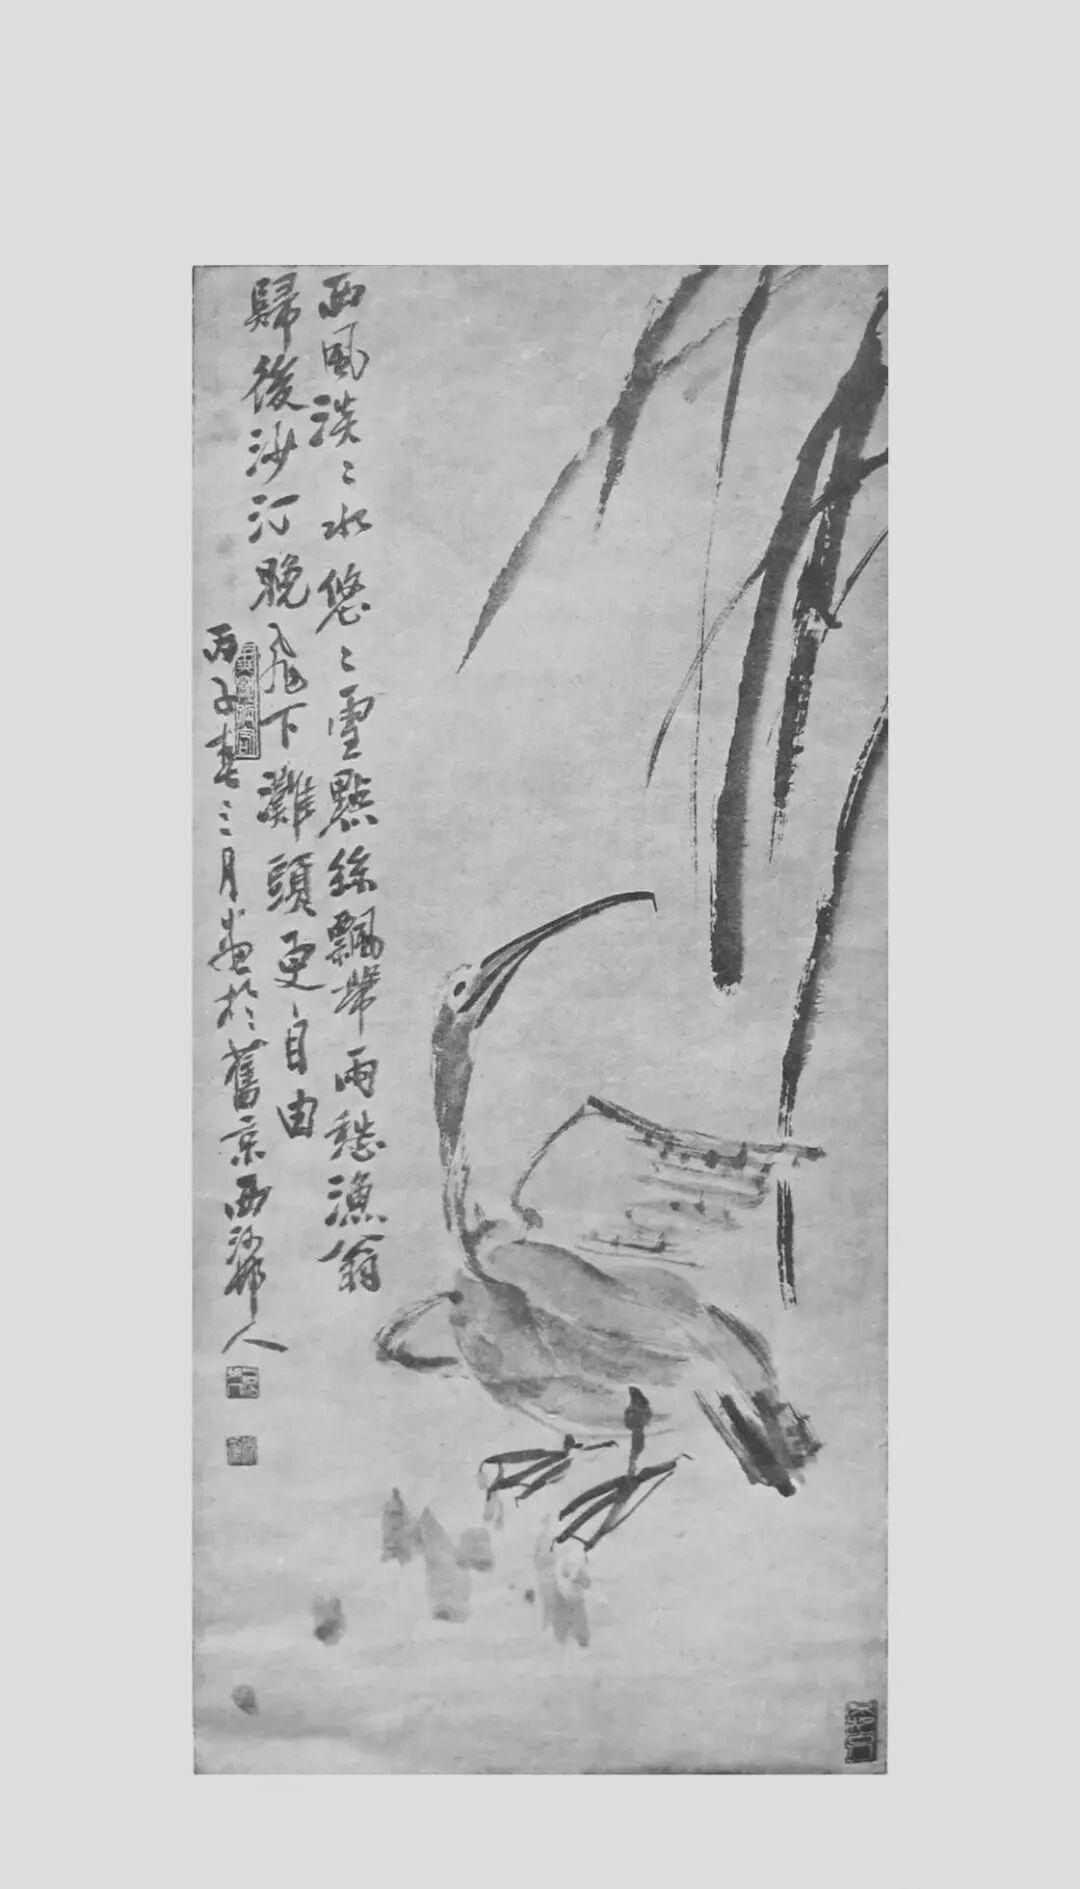 西風淡〻水悠〻雪點絲飄帶雨愁漁翁
歸後沙汀晚飛下灘頭更自由
丙子春三月畫於舊京西河㳂人